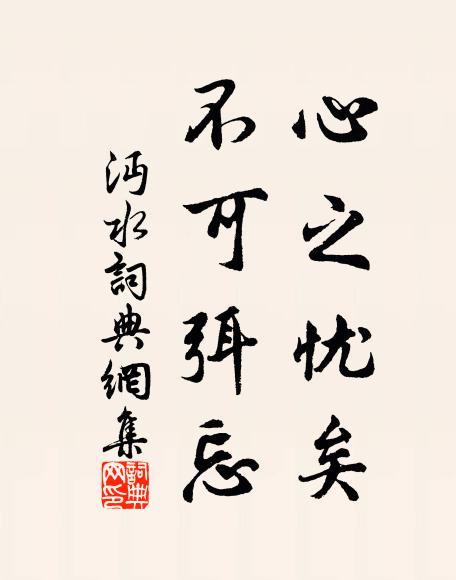 心之忧矣
不可弭忘
沔水詞典網集
詞典网印